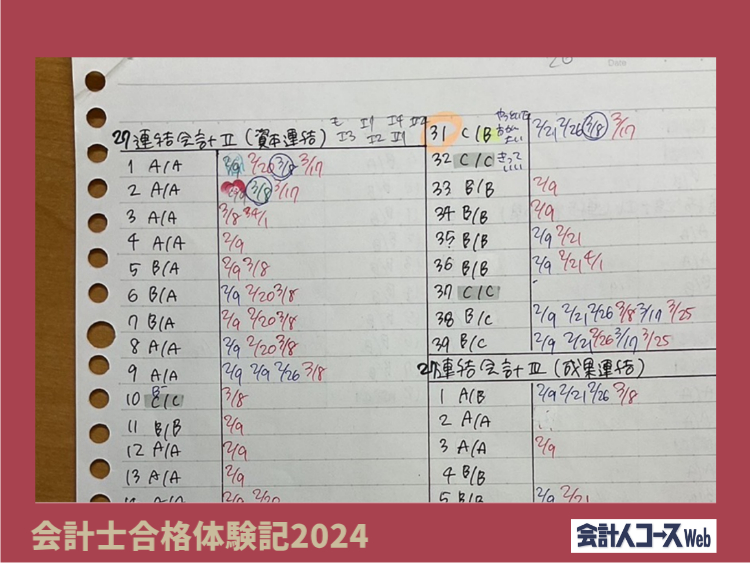 Date
27連結会計Ⅱ(資本連結)
1 A/A 2/9 2/20 3/8 3/17
2 A/A 3/8 3/17
3 A/A 3/8 4/1
4 A/A 2/9
5 B/A 2/9 3/8
6 B/A 2/9 2/20 3/8
7 B/A 2/9 2/20 3/8
8 A/A 2/9 2/20 3/8
9 A/A 2/9 2/9 2/26 3/8
10 C/C 3/8
11 B/B 2/9
12 A/A 2/9
13 A/A 2/9
2/9 2/20
31 C/B 2/21 2/26 3/8 3/17
32 C/C きっていい
33 B/B 2/9
34 B/B 2/9
35 B/B 2/9 2/21
36 B/B 2/9 2/21 4/1
37 C/C
38 B/C 2/9 2/21 2/26 3/8 3/17 3/25
39 B/C 2/9 2/21 2/26 3/17 3/25
27連結会計Ⅲ(成果連結)
1 A/B 2/9 2/21 2/26 3/8
2 A/A
3 A/A 2/9
4 B/B
5 B/B 2/9 2/21
会計士合格体験記2024
会計人コースWeb